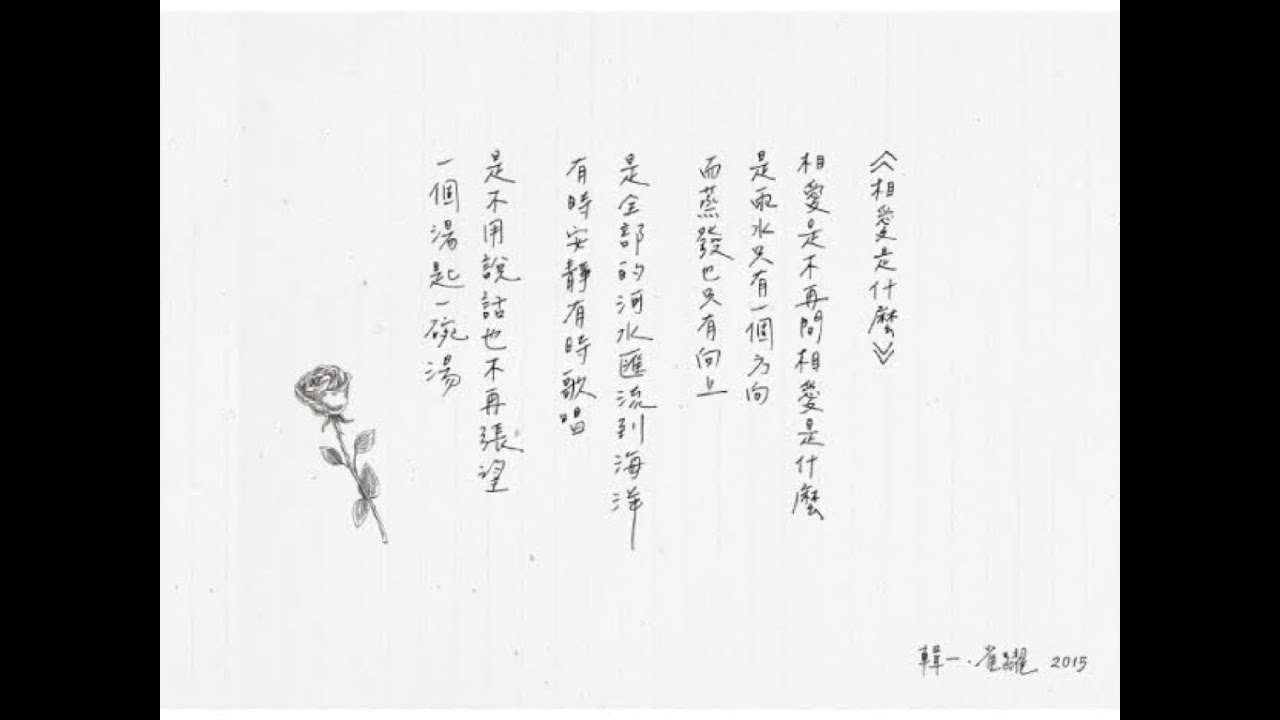 《相愛是什麼》
相愛是不再問相愛是什麼
是雨水只有一個方向
而蒸發也只有向上
是全部的河水匯流到海洋
有時安靜有時歌唱
是不用說話也不再張望
一個湯匙一碗湯
輯一·雀躍 2015